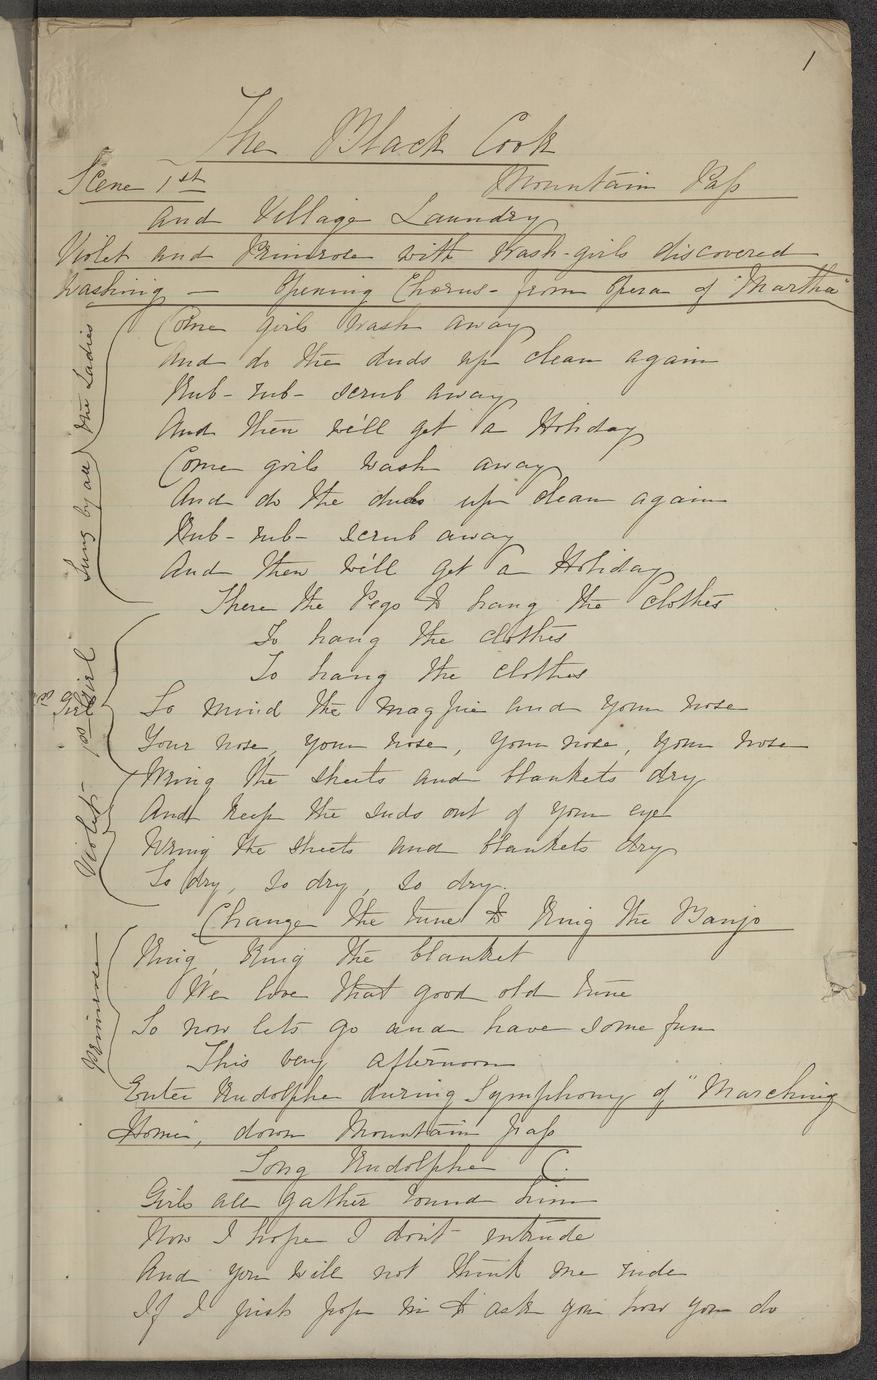 1
The Black Cook
Scene 1st Mountain Pass
and Village Laundry
Violet and Primrose with Wash-girls discovered
washing — Opening Chorus - from Opera of "Martha"
Sung by all the Ladies
Come girls wash away
And do the duds up clean again
Rub - rub - scrub away
And then we'll get a Holiday
Come girls wash away
And do the duds up clean again
Rub - rub - scrub away
And then we'll get a Holiday
1st Girl
1st Girl
There the Pegs to hang the clothes
To hang the clothes
To hang the clothes
So mind the magpie and your nose
Your nose, your nose, your nose, your nose
Violet
Wring the sheets and blankets dry
And keep the suds out of your eye
Wring the sheets and blankets dry
So dry, so dry, so dry.
Change the tune to Ring the Banjo
Primrose
Ring, Ring the blanket
We love that good old tune
So now lets go and have some fun
This very afternoon
Enter Rudolphe during Symphony of "Marching
Home, down Mountain pass
Song Rudolphe C.
Girls all gather round him
Now I hope I don't intrude
And you will not think me rude
If I just pop in to ask you how you do